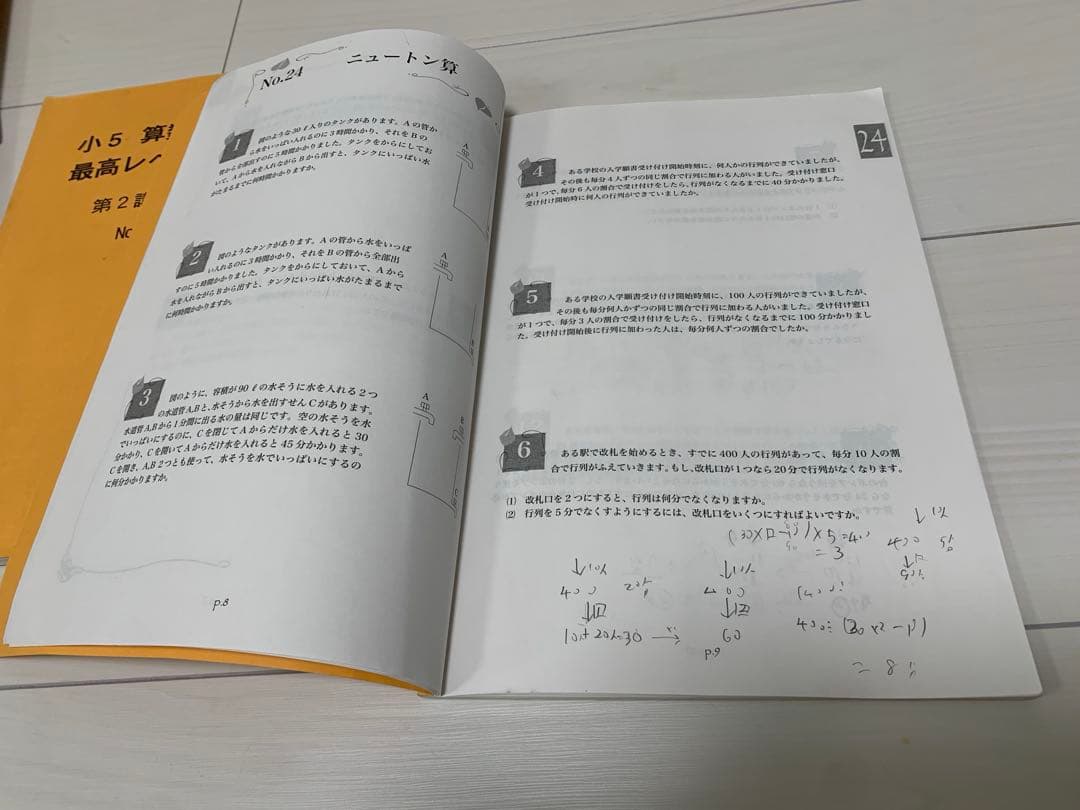 小５ 算
最高レ
第２
No
No.24
ニュートン算
1
図のような30ℓ入りのタンクがあります。Aの管か
ら水をいっぱい入れるのに３時間かかり、それをBの
管から全部出すのに５時間かかりました。タンクをからにしてお
いて、Aから水を入れながらBから出すと、タンクにいっぱい水
がたまるまでに何時間かかりますか。
A
2
図のようなタンクがあります。Aの管から水をいっぱ
い入れるのに３時間かかり、それをBの管から全部出
すのに５時間かかりました。タンクをからにしておいて、Aから
水を入れながらBから出すと、タンクにいっぱい水がたまるまで
に何時間かかりますか。
A
B
3
図のように、容積が90ℓの水そうに水を入れる２つ
の水道管A,Bと、水そうから水を出すせんCがあります。
水道管A,Bから１分間に出る水の量は同じです。空の水そうを水
でいっぱいにするのに、Cを閉じてAからだけ水を入れると30
分かかり、Cを開いてAからだけ水を入れると45分かかります。
Cを開き、A,B２つとも使って、水そうを水でいっぱいにするの
に何分かかりますか。
A
B
C
p.8
24
4
ある学校の入学願書受け付け開始時刻に、何人かの行列ができていましたが、
その後も毎分４人ずつの同じ割合で行列に加わる人がいました。受け付け窓口
が１つで、毎分６人の割合で受け付けをしたら、行列がなくなるまでに40分かかりました。
受け付け開始時に何人の行列ができていましたか。
5
ある学校の入学願書受け付け開始時刻に、100人の行列ができていましたが、
その後も毎分何人かずつの同じ割合で行列に加わる人がいました。受け付け窓口
が１つで、毎分３人の割合で受け付けをしたら、行列がなくなるまでに100分かかりまし
た。受け付け開始後に行列に加わった人は、毎分何人ずつの割合でしたか。
6
ある駅で改札を始めるとき、すでに400人の行列があって、毎分10人の割
合で行列がふえていきます。もし、改札口が１つなら20分で行列がなくなります。
(1) 改札口を２つにすると、行列は何分でなくなりますか。
(2) 行列を５分でなくすようにするには、改札口をいくつにすればよいですか。
= 3
400
400
400
60
p.9
= 8